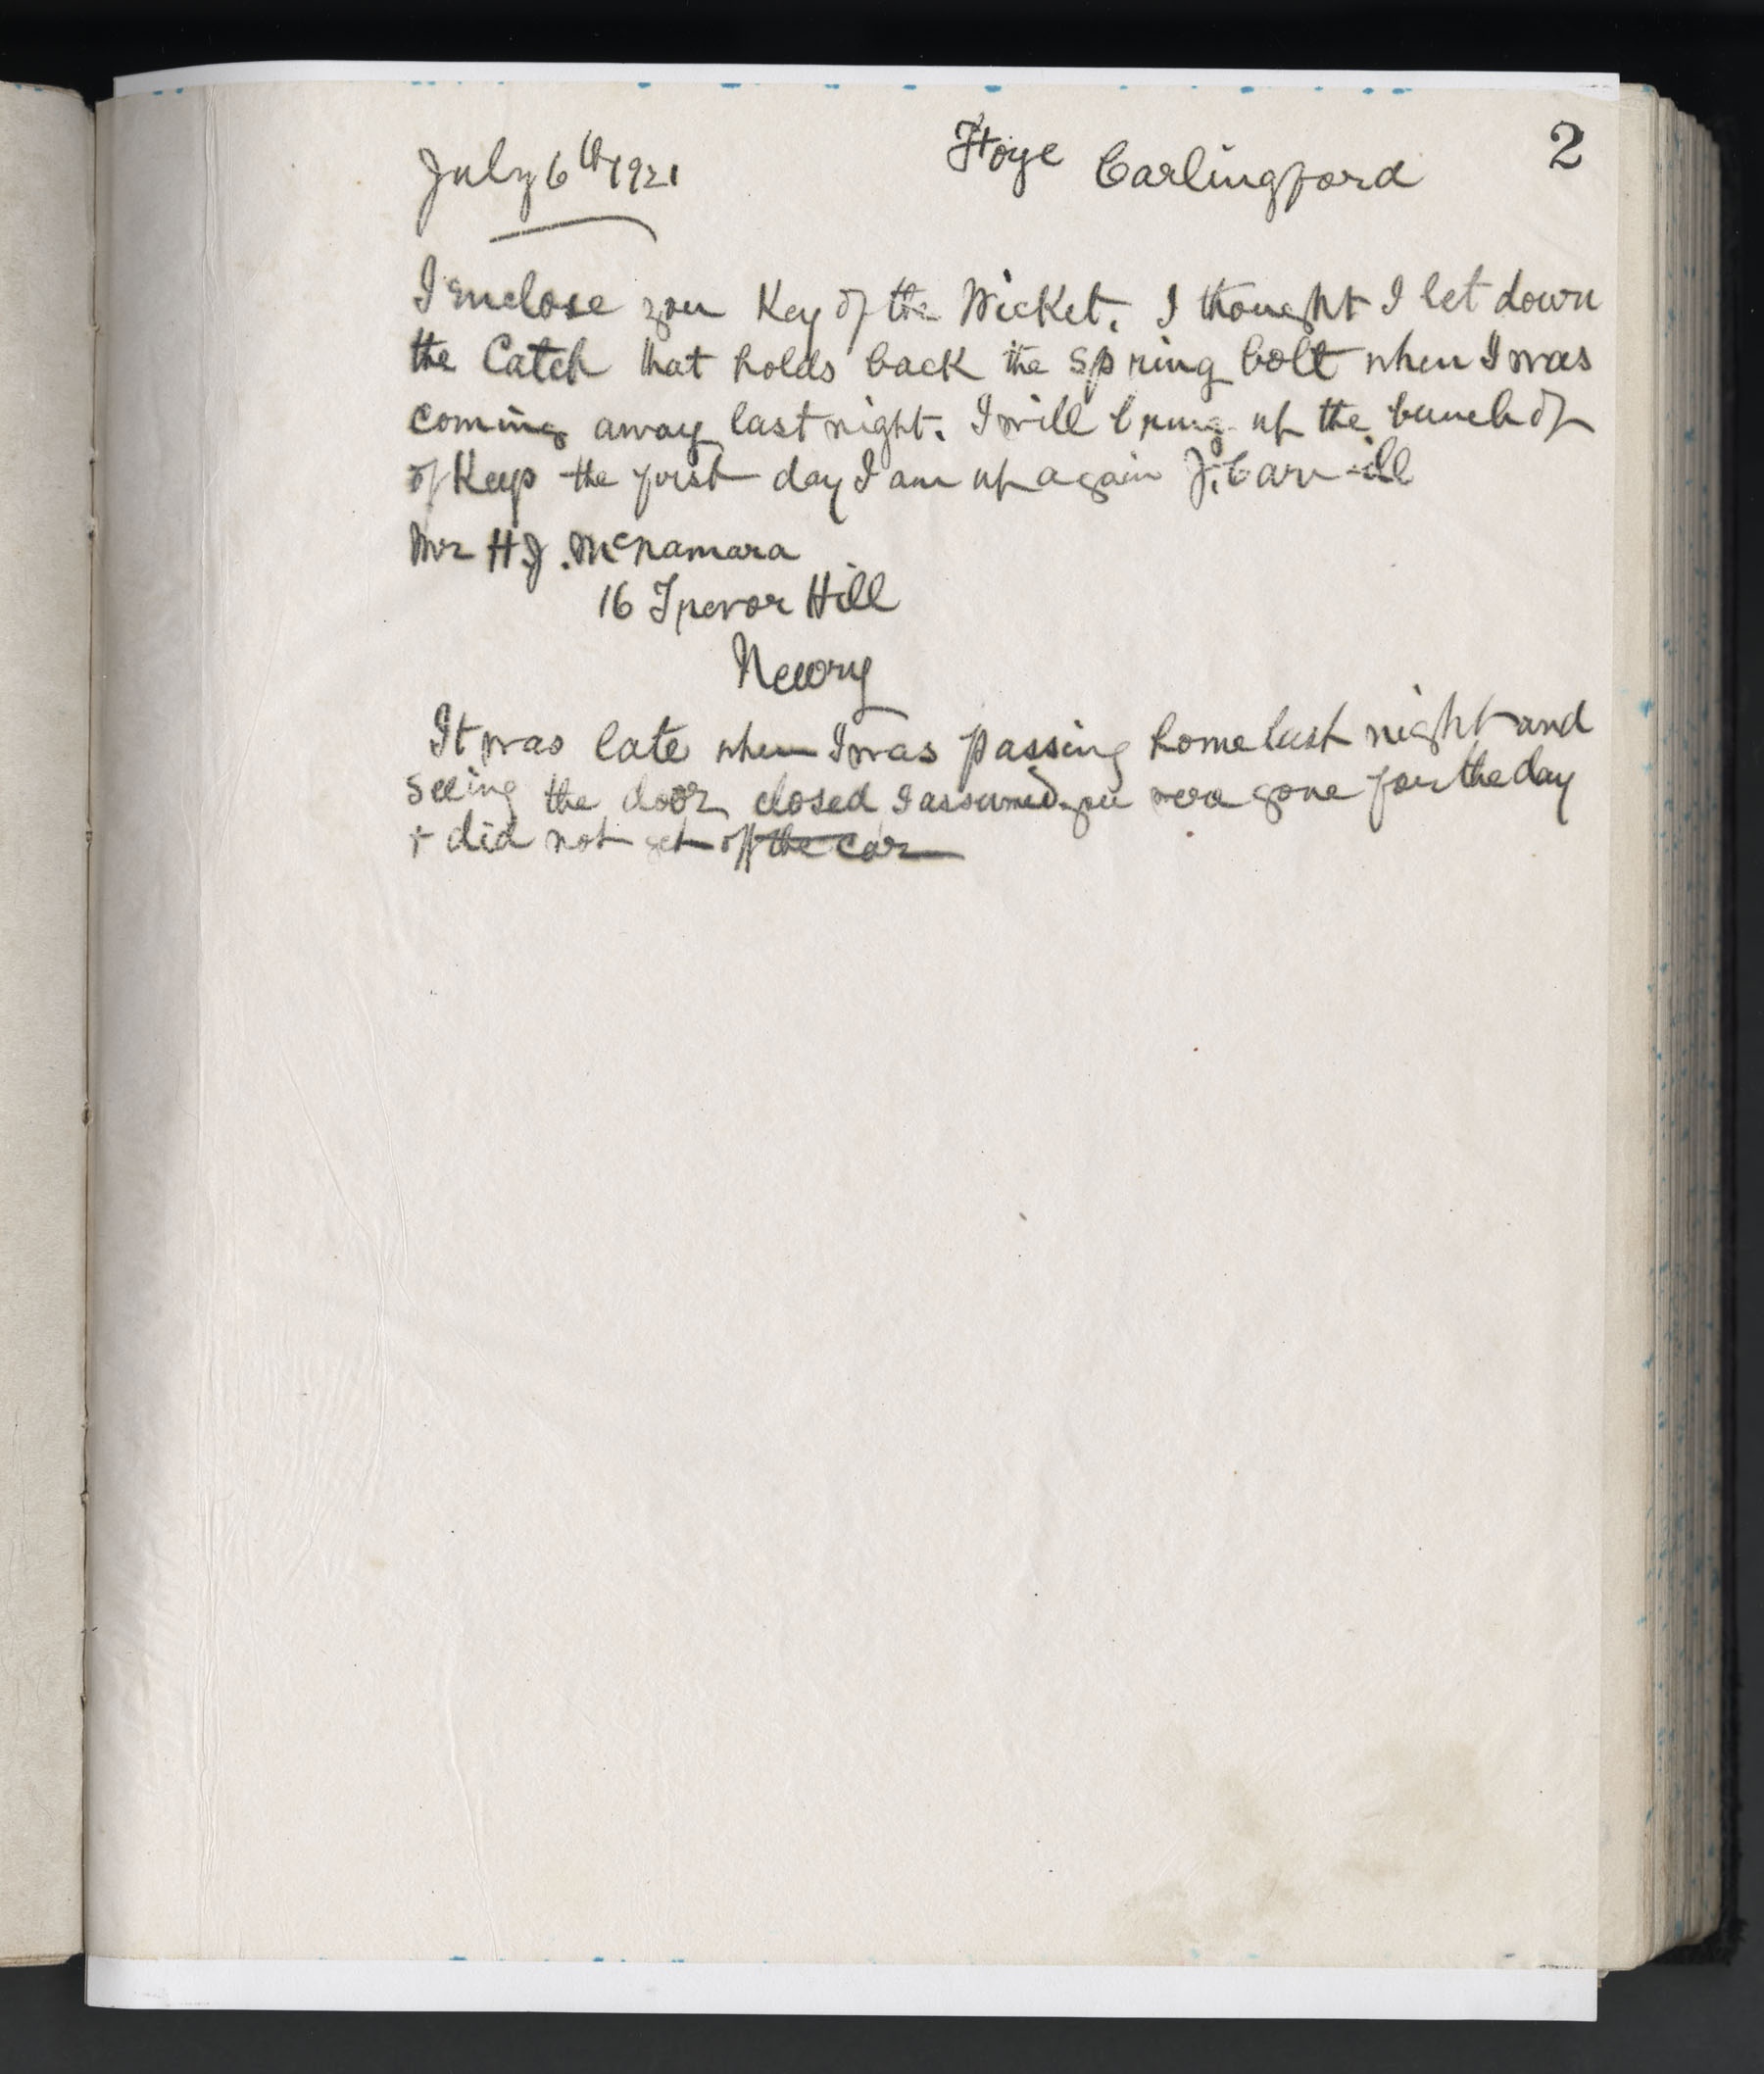 July 6th 1921 Ffoye Carlingford 2
I enclose you Key of the Wicket. I thought I let down
the Catch that holds back the spring bolt when I was
coming away last night. I will bring up the bunch of
of Keys the first day I am up again J. Carvill
Mr H.J. McNamara
16 Trevor Hill
Newry
It was late when I was passing home last night and
seeing the door closed I assumed you were gone for the day
+ did not get off the car